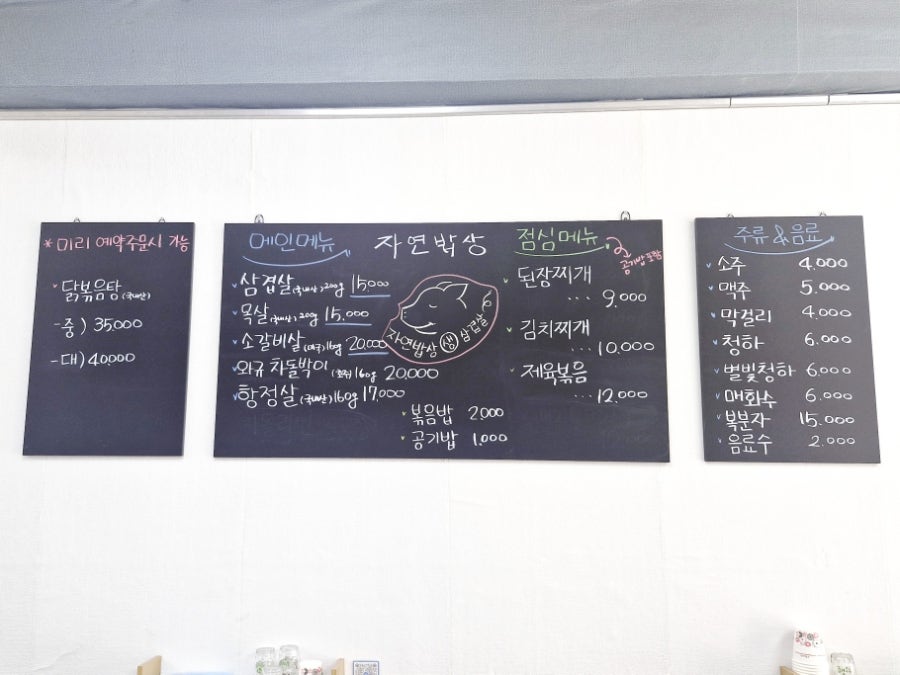 * 미리 예약주문시 가능
닭볶음탕 (국내산)
- 중 ) 35,000
- 대 ) 40,000
메인메뉴
삼겹살 (국내산) 200g 15,000
목살 (국내산) 200g 15,000
소갈비살 (미국) 160g 20,000
와규 차돌박이 (호주) 160g 20,000
항정살 (국내산) 160g 17,000
자연밥상
자연밥상 생 삼겹살
볶음밥 2,000
공기밥 1,000
점심메뉴
공기밥 포함
된장찌개
... 9,000
김치찌개
... 10,000
제육볶음
... 12,000
주류 & 음료
소주 4,000
맥주 5,000
막걸리 4,000
청하 6,000
별빛청하 6,000
매화수 6,000
복분자 15,000
음료수 2,000